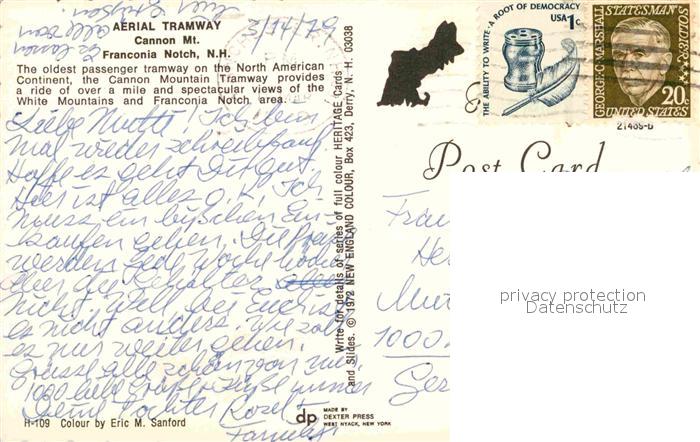 AERIAL TRAMWAY
Cannon Mt.
Franconia Notch, N.H.
3/14/79
The oldest passenger tramway on the North American
Continent, the Cannon Mountain Tramway provides
a ride of over a mile and spectacular views of the
White Mountains and Franconia Notch area.
Liebe Mutti! Ich bin
mal wieder schreibfaul
Hoffe es geht Dir gut.
Hier ist alles o.k. Ich
muss ein bisschen Ein-
kaufen gehen. Die Preise
werden jede Woche höher
aber die Gehälter
nicht. Wird bei Euch
es nicht anders. Wie soll
es nur weiter gehen.
Grüsse alle schön von mir
1000 liebe Grüsse + Küsse immer
Deine Tochter
Family
H-109 Colour by Eric M. Sanford
Write for details of series of full colour HERITAGE Cards
and Slides. © 1972 NEW ENGLAND COLOUR, Box 423, Derry, N. H. 03038
dp MADE BY
DEXTER PRESS
WEST NYACK, NEW YORK
THE ABILITY TO WRITE · A ROOT OF DEMOCRACY
USA 1c
GEORGE C. MARSHALL
STATESMAN
20c
UNITED STATES
21489-D
Post Card
Frau
1000
privacy protection
Datenschutz